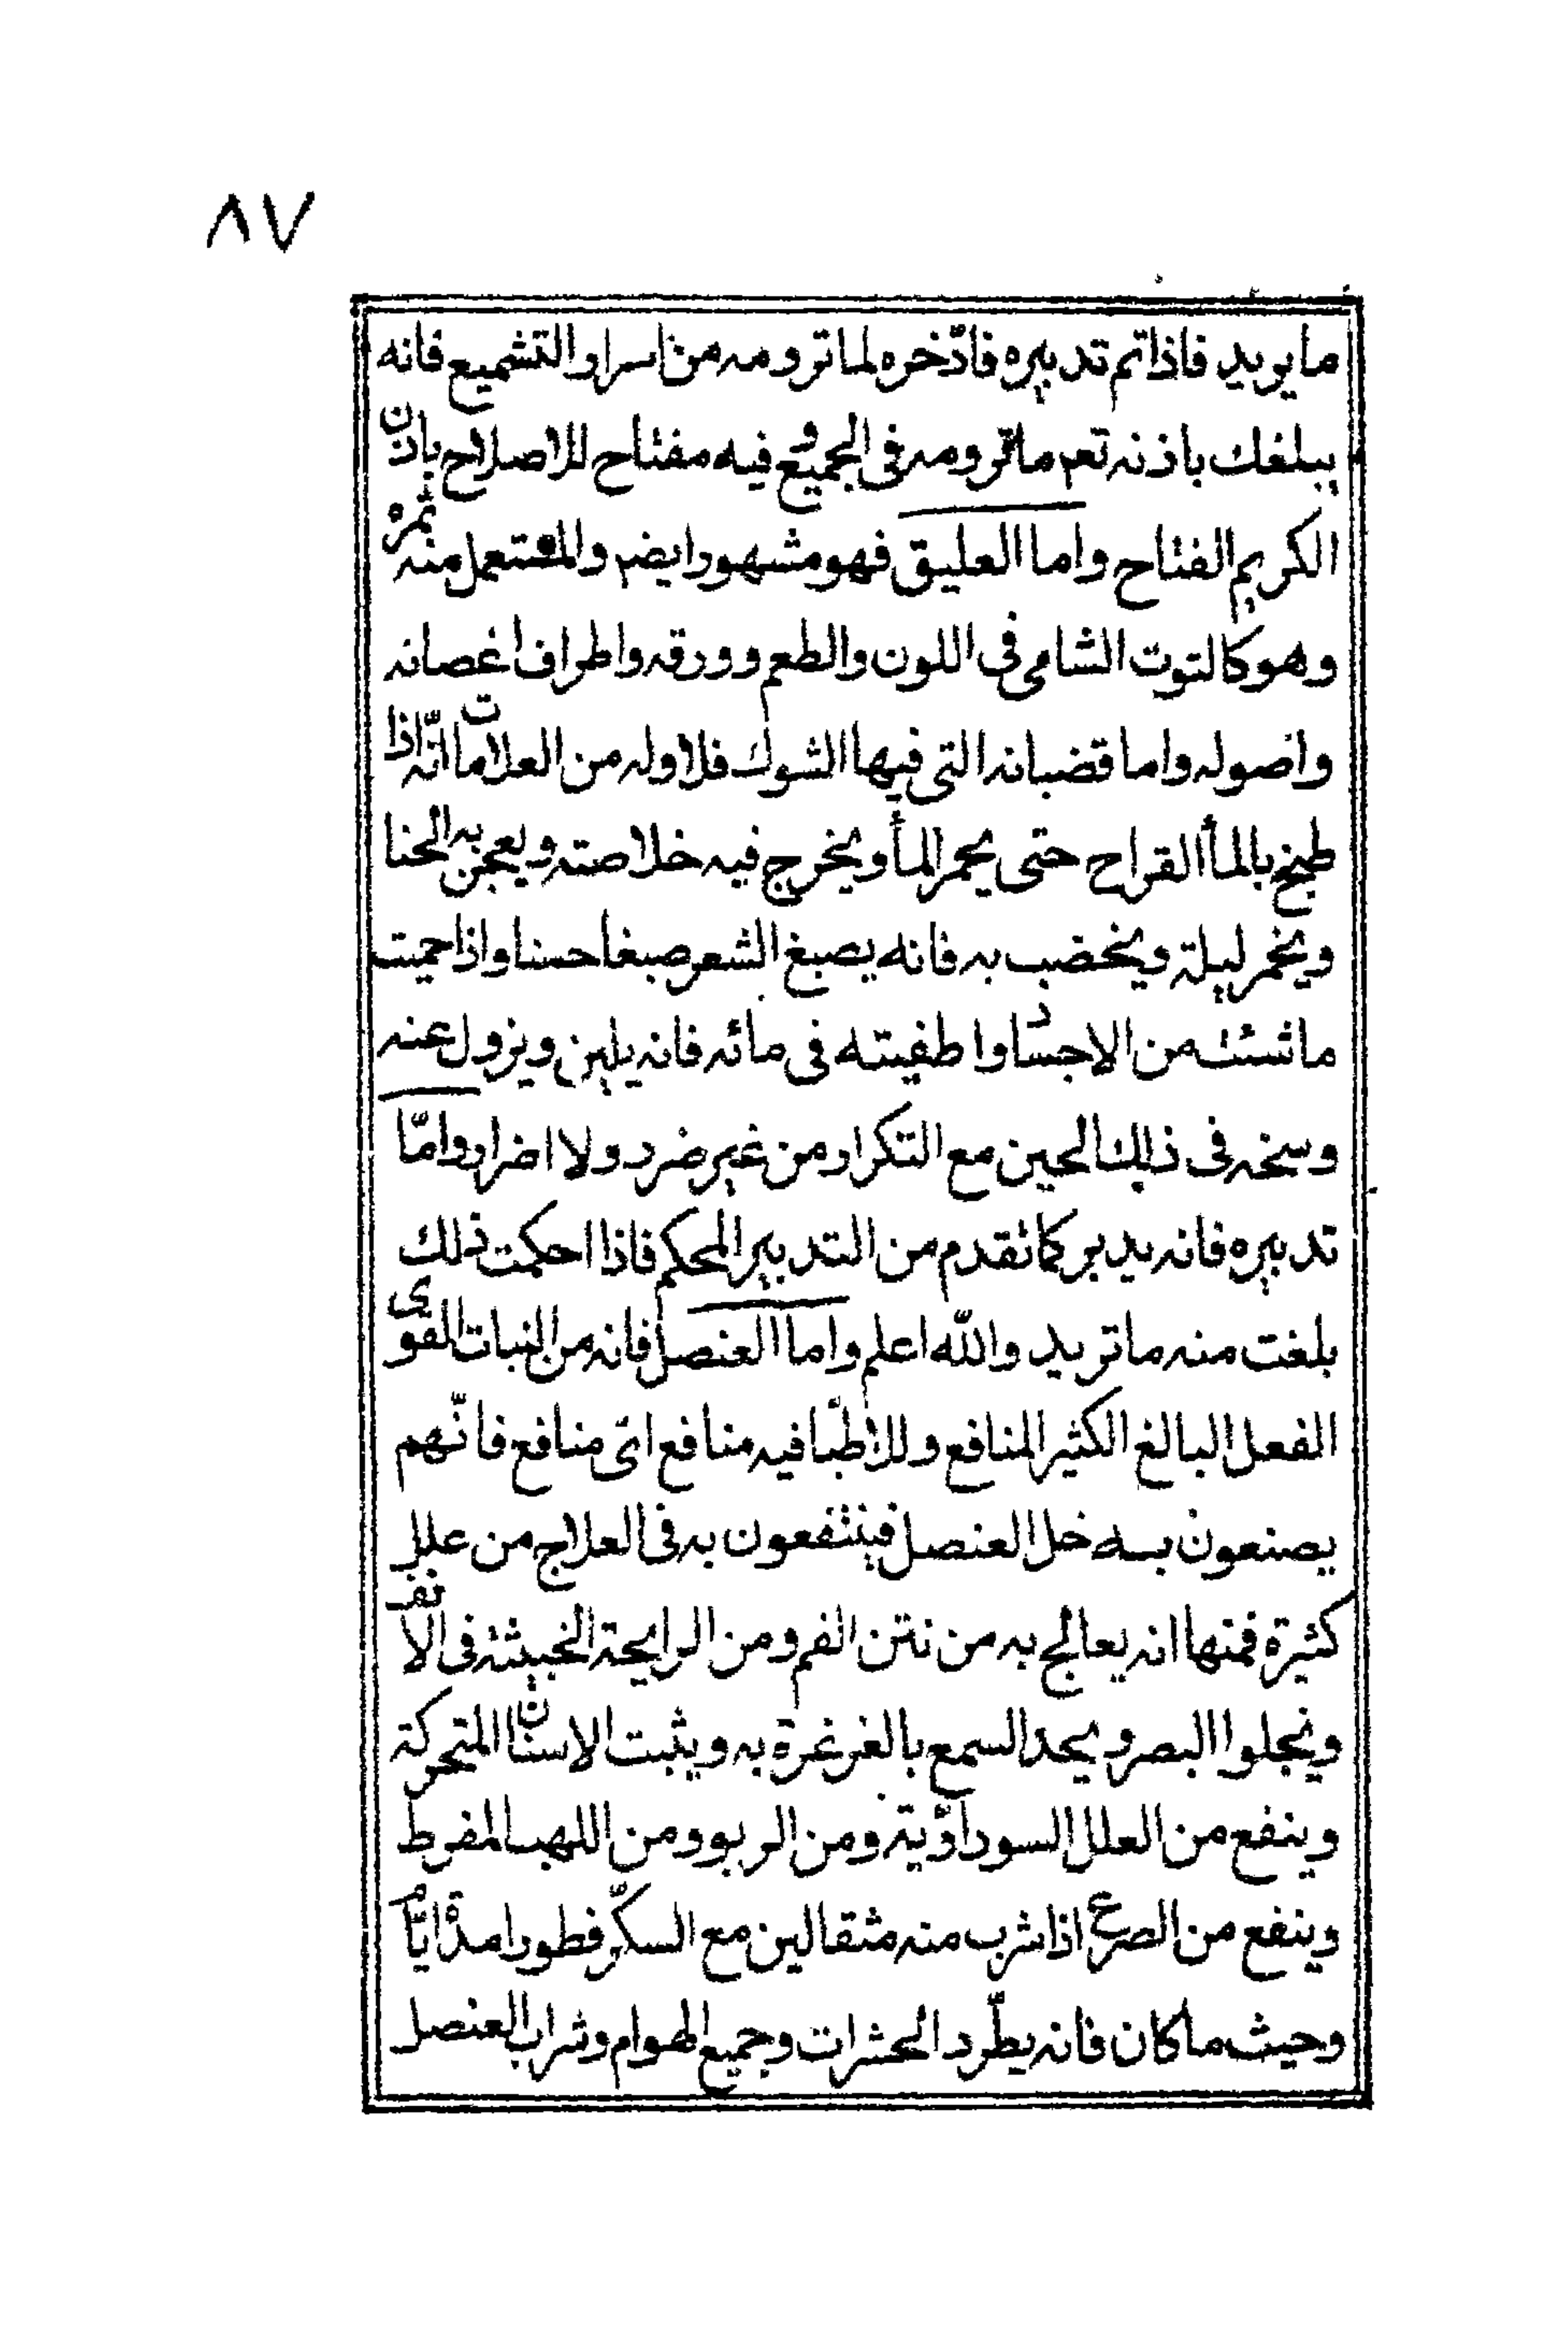 ٨٧
ما يريد فاذا تم تدبيره فادّخره لما ترومه من اسرار التشميع فانه
يبلغك باذنه تعم ما ترومه فى الجميع وفيه مفتاح للاصلاح باذن
الكريم الفتاح واما العليق فهو مشهور ايضم والمستعمل منه ثمره
وهو كالتوت الشامى فى اللون والطعم وورقه واطراف اغصانه
واصوله واما قضبانه التى فيها الشوك فلا وله من العلامات انّه اذا
طبخ بالمأ القراح حتى يحمر المأ ويخرج فيه خلاصته ويعجن به الحنا
ويخمر ليلة ويخضب به فانه يصبغ الشعر صبغا حسنا واذا حميت
ما شئت من الاجساد واطفيته فى مائه فانه يلين ويزول عنه
وسخه فى ذلك الحين مع التكرار من غير ضرر ولا اضرار وامّا
تدبيره فانه يدبر كما تقدم من التدبير المحكم فاذا احكمت ذلك
بلغت منه ما تريد والله اعلم واما العنصل فانه من النبات القوى
الفعل البالغ الكثير المنافع وللاطبّا فيه منافع اىّ منافع فانّهم
يصنعون به خل العنصل فينتفعون به فى العلاج من علل
كثيرة فمنها انه يعالج به من نتن الفم ومن الرايحة الخبيثة فى الانف
ويجلوا البصر ويحد السمع بالغرغرة به ويثبت الاسنان المتحركة
وينفع من العلل السوداوّية ومن الربو ومن اللهب المفرط
وينفع من الصرع اذا شرب منه مثقالين مع السكّر فطورا مدة ايّام
وحيث ما كان فانه يطّرد الحشرات وجميع الهوام وشراب العنصل